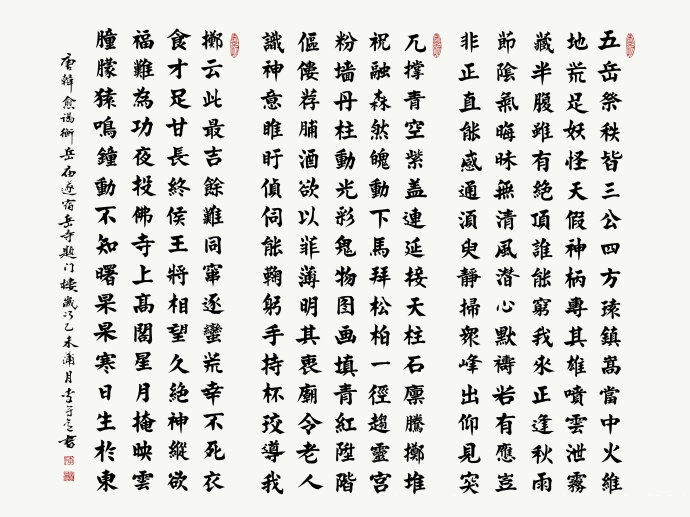 五岳祭秩皆三公四方環鎮嵩當中火維
地荒足妖怪天假神柄專其雄噴雲泄霧
藏半腹雖有絶頂誰能窮我來正逢秋雨
節陰氣晦昧無清風潛心默禱若有應豈
非正直能感通湏臾靜掃衆峰出仰見突
兀撐青空紫蓋連延接天柱石廩騰擲堆
祝融森然魄動下馬拜松柏一徑趨靈宮
粉墻丹柱動光彩鬼物图画填青紅陞階
傴僂荐脯酒欲以菲薄明其衷廟令老人
識神意睢盱偵伺能鞠躬手持杯珓導我
擲云此最吉餘難同竄逐蠻荒幸不死衣
食才足甘長終侯王將相望久絶神縱欲
福難為功夜投佛寺上高閣星月掩映雲
朣朦猿鳴鐘動不知曙杲杲寒日生於東
唐韓愈謁衡岳庙遂宿岳寺題门樓歲次乙未蒲月李守書